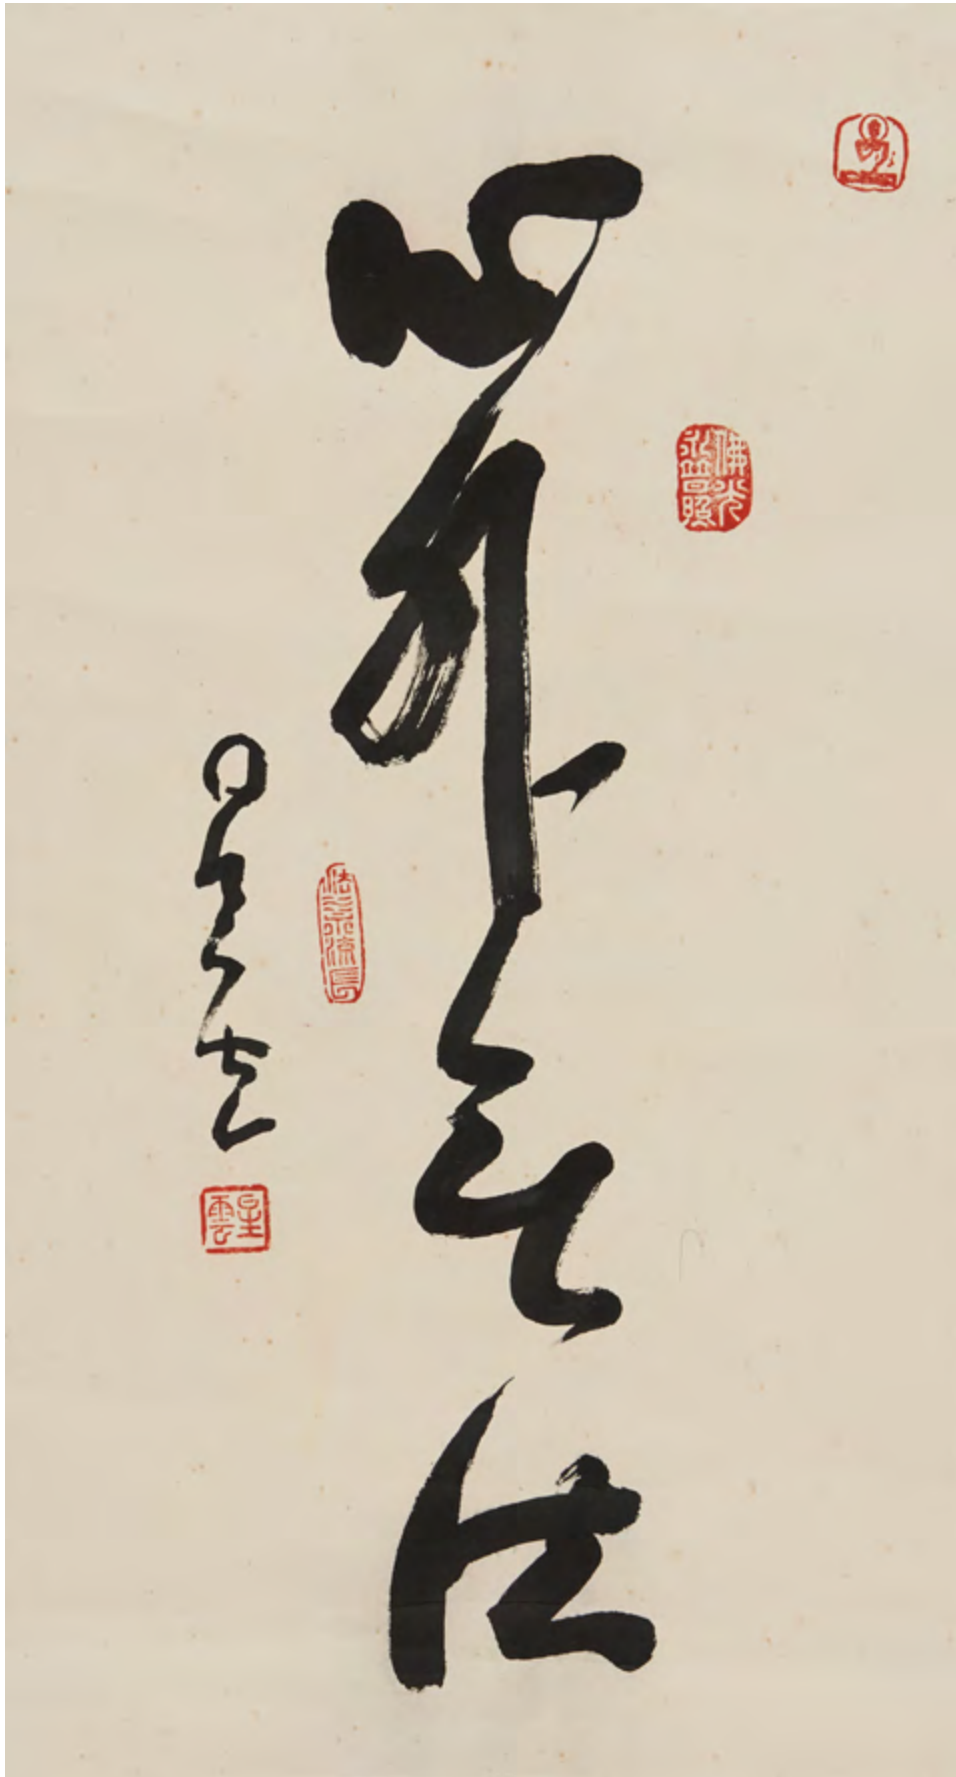 心外無法
佛光普照
星雲
法水流長
星雲